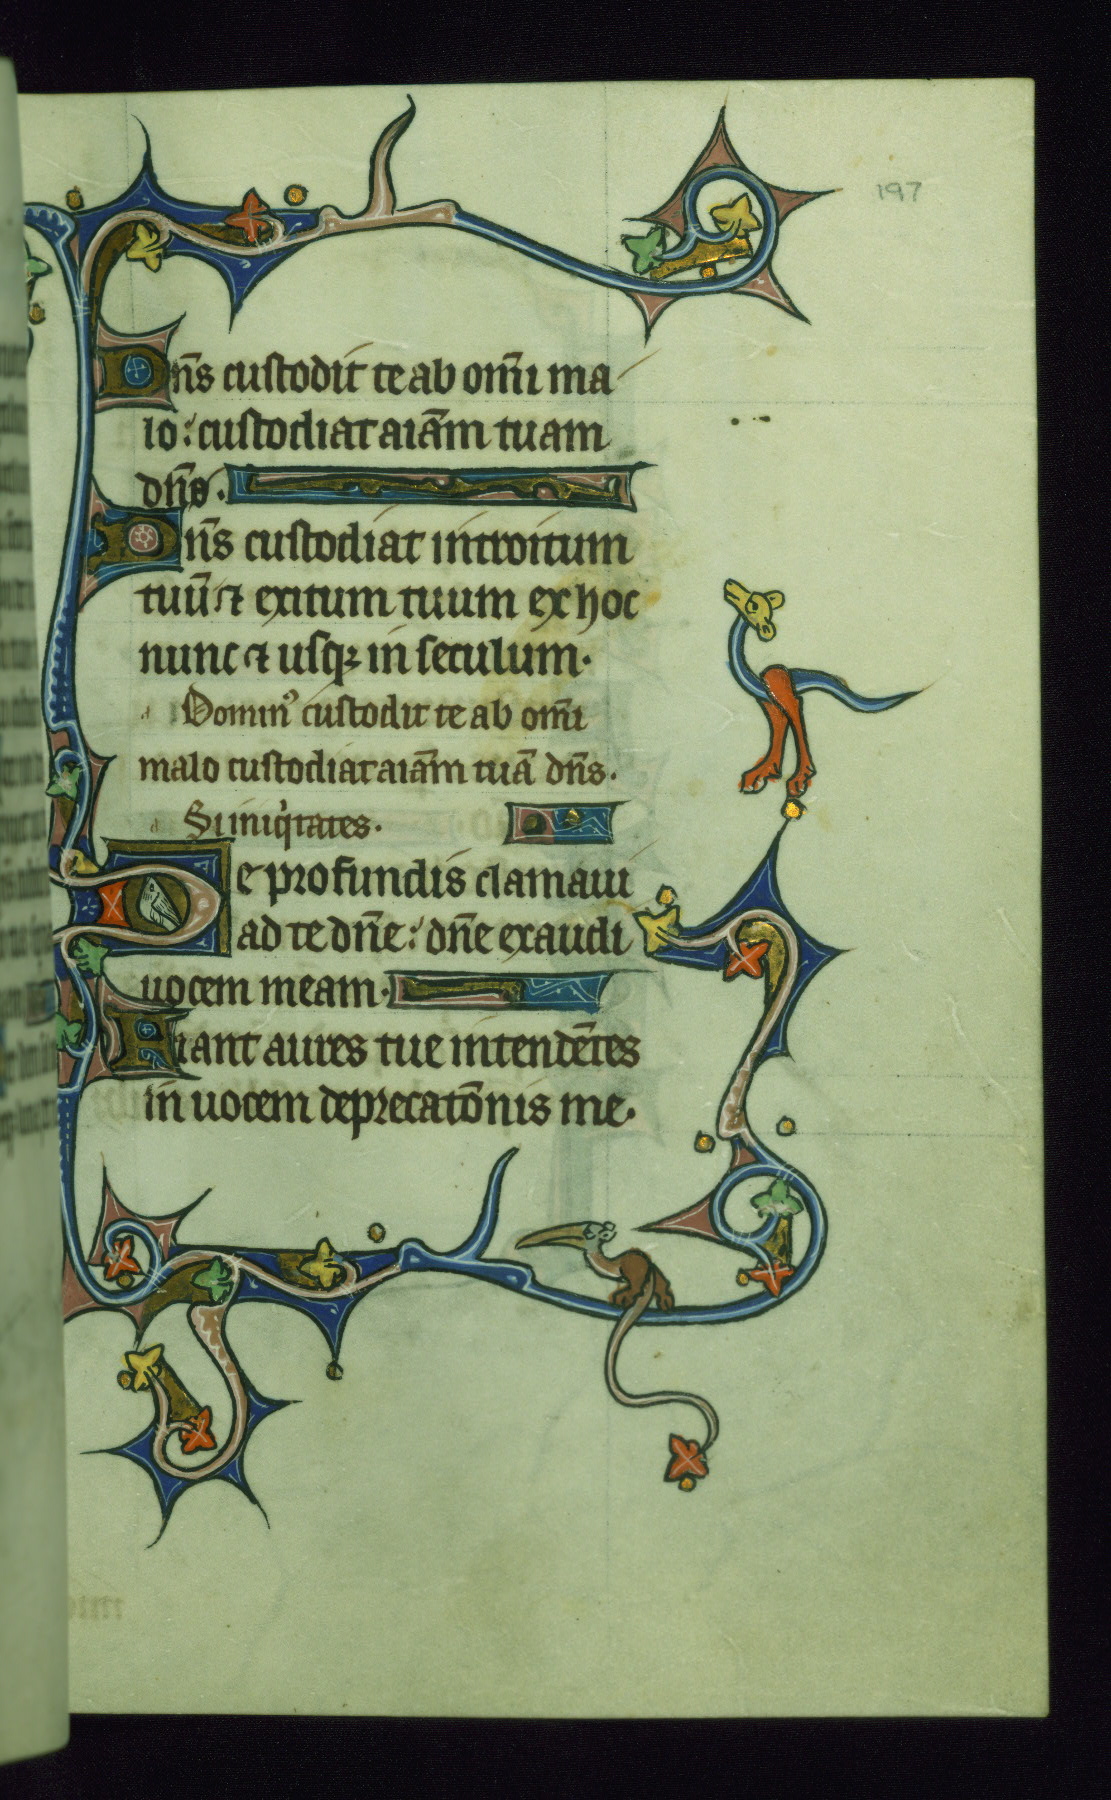 197
Dn̄s custodit te ab om̄i ma
lo: custodiat aiām tuam
dn̄s.
Dn̄s custodiat introitum
tuū ⁊ exitum tuum ex hoc
nunc ⁊ usqꝫ in seculum.
Dominꝰ custodit te ab om̄i
malo custodiat aiām tuā dn̄s.
Si iniqͥtates.
De profundis clamaui
ad te dn̄e: dn̄e exaudi
uocem meam.
Fiant aures tue intendētes
in uocem deprecatōnis me.